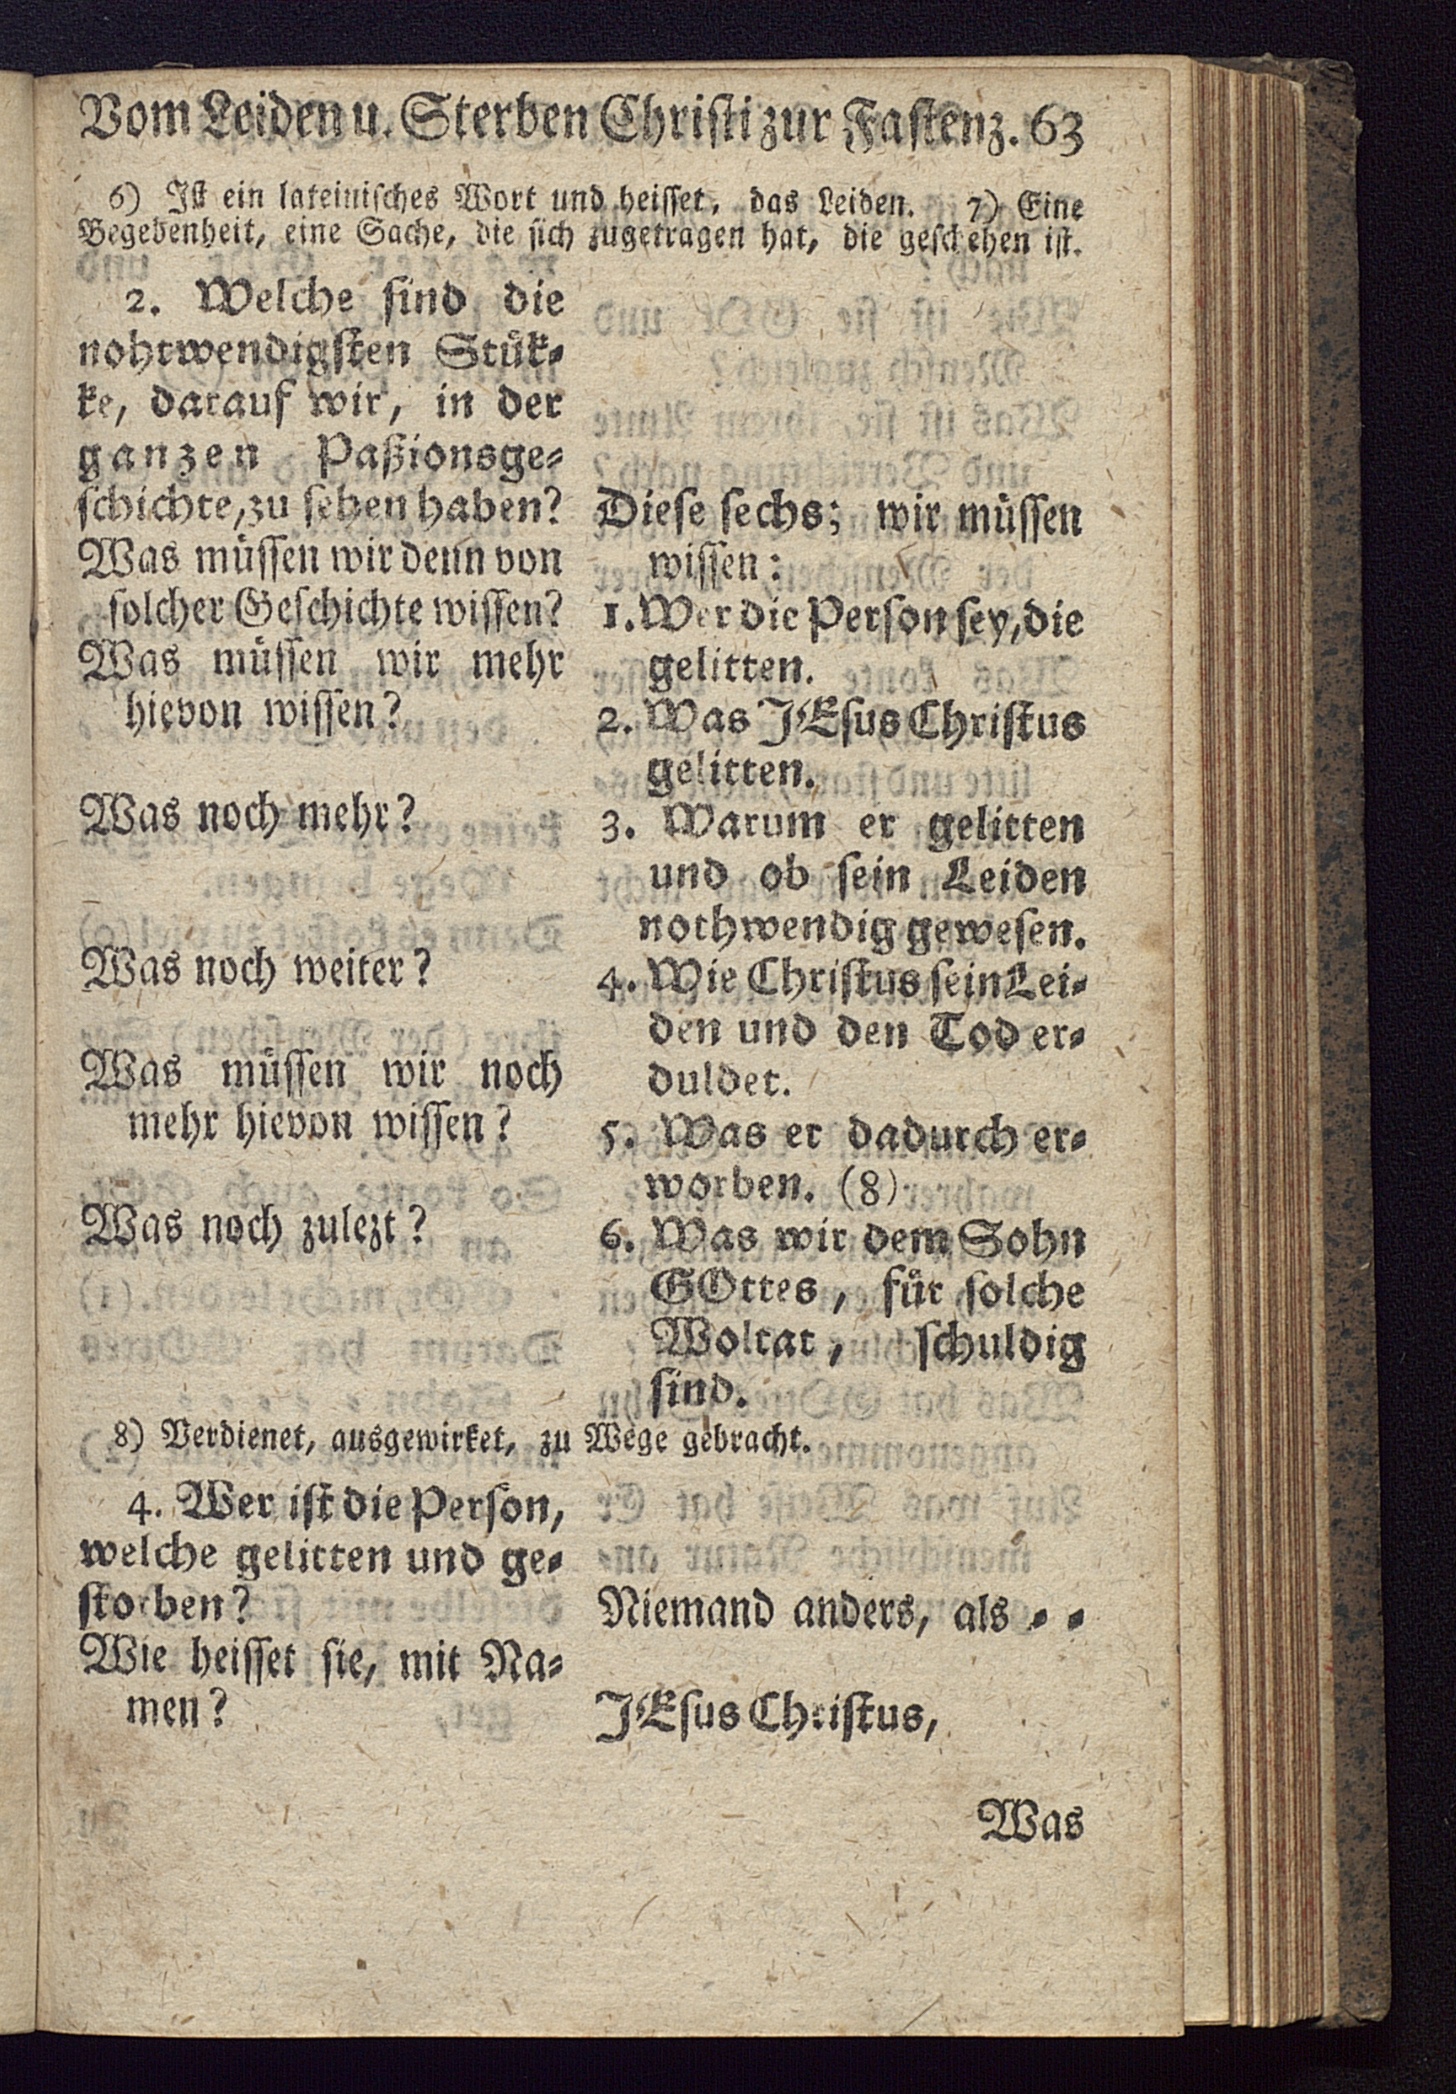 Vom Leiden u. Sterben Christi zur Fastenz. 63
6) Ist ein lateinisches Wort und heisset, das Leiden. 7) Eine
Begebenheit, eine Sache, die sich zugetragen hat, die geschehen ist.
2. Welche sind die
nohtwendigsten Stük-
ke, darauf wir, in der
ganzen Paßionsge-
schichte, zu sehen haben?
Was müssen wir denn von
solcher Geschichte wissen?
Was müssen wir mehr
hievon wissen?
Was noch mehr?
Was noch weiter?
Was müssen wir noch
mehr hievon wissen?
Was noch zulezt?
Diese sechs; wir müssen
wissen:
1. Wer die Person sey, die
gelitten.
2. Was JEsus Christus
gelitten.
3. Warum er gelitten
und ob sein Leiden
nothwendig gewesen.
4. Wie Christus sein Lei-
den und den Tod er-
duldet.
5. Was er dadurch er-
worben. (8)
6. Was wir dem Sohn
GOttes, für solche
Woltat, schuldig
sind.
8) Verdienet, ausgewirket, zu Wege gebracht.
4. Wer ist die Person,
welche gelitten und ge-
storben?
Wie heisset sie, mit Na-
men?
Niemand anders, als - -
JEsus Christus,
Was